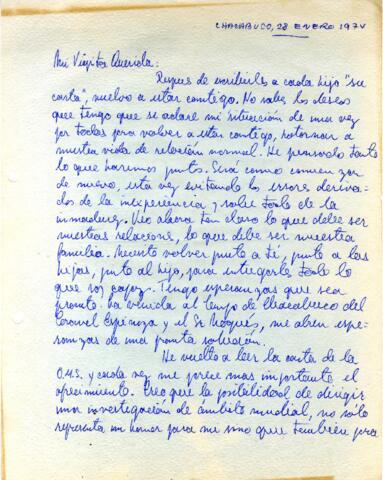 CHACABUCO, 28 ENERO 1974
Mi Viejita Querida:
Después de escribirles a cada hijo "su
carta", vuelvo a estar contigo. No sabes los deseos
que tengo que se aclare mi situación de una vez
por todas para volver a estar contigo, retornar a
nuestra vida de relación normal. He pensado tanto
lo que haremos juntos. Será como comenzar
de nuevo, esta vez evitando los errores deriva-
dos de la inexperiencia y sobre todo de la
inmadurez. Veo ahora tan claro lo que debe ser
nuestras relaciones, lo que debe ser nuestra
familia. Necesito volver junto a tí, junto a las
hijas, junto al hijo, para entregarles todo lo
que soy capaz. Tengo esperanzas que sea
pronto. La venida al Campo de Chacabuco del
Coronel Espinoza y el Sr. Moqués, me abren espe-
ranzas de una pronta solución.
He vuelto a leer la carta de la
O.M.S. y cada vez me parece más importante el
ofrecimiento. Creo que la posibilidad de dirigir
una investigación de ámbito mundial, no sólo
representa un honor para mí sino que también para